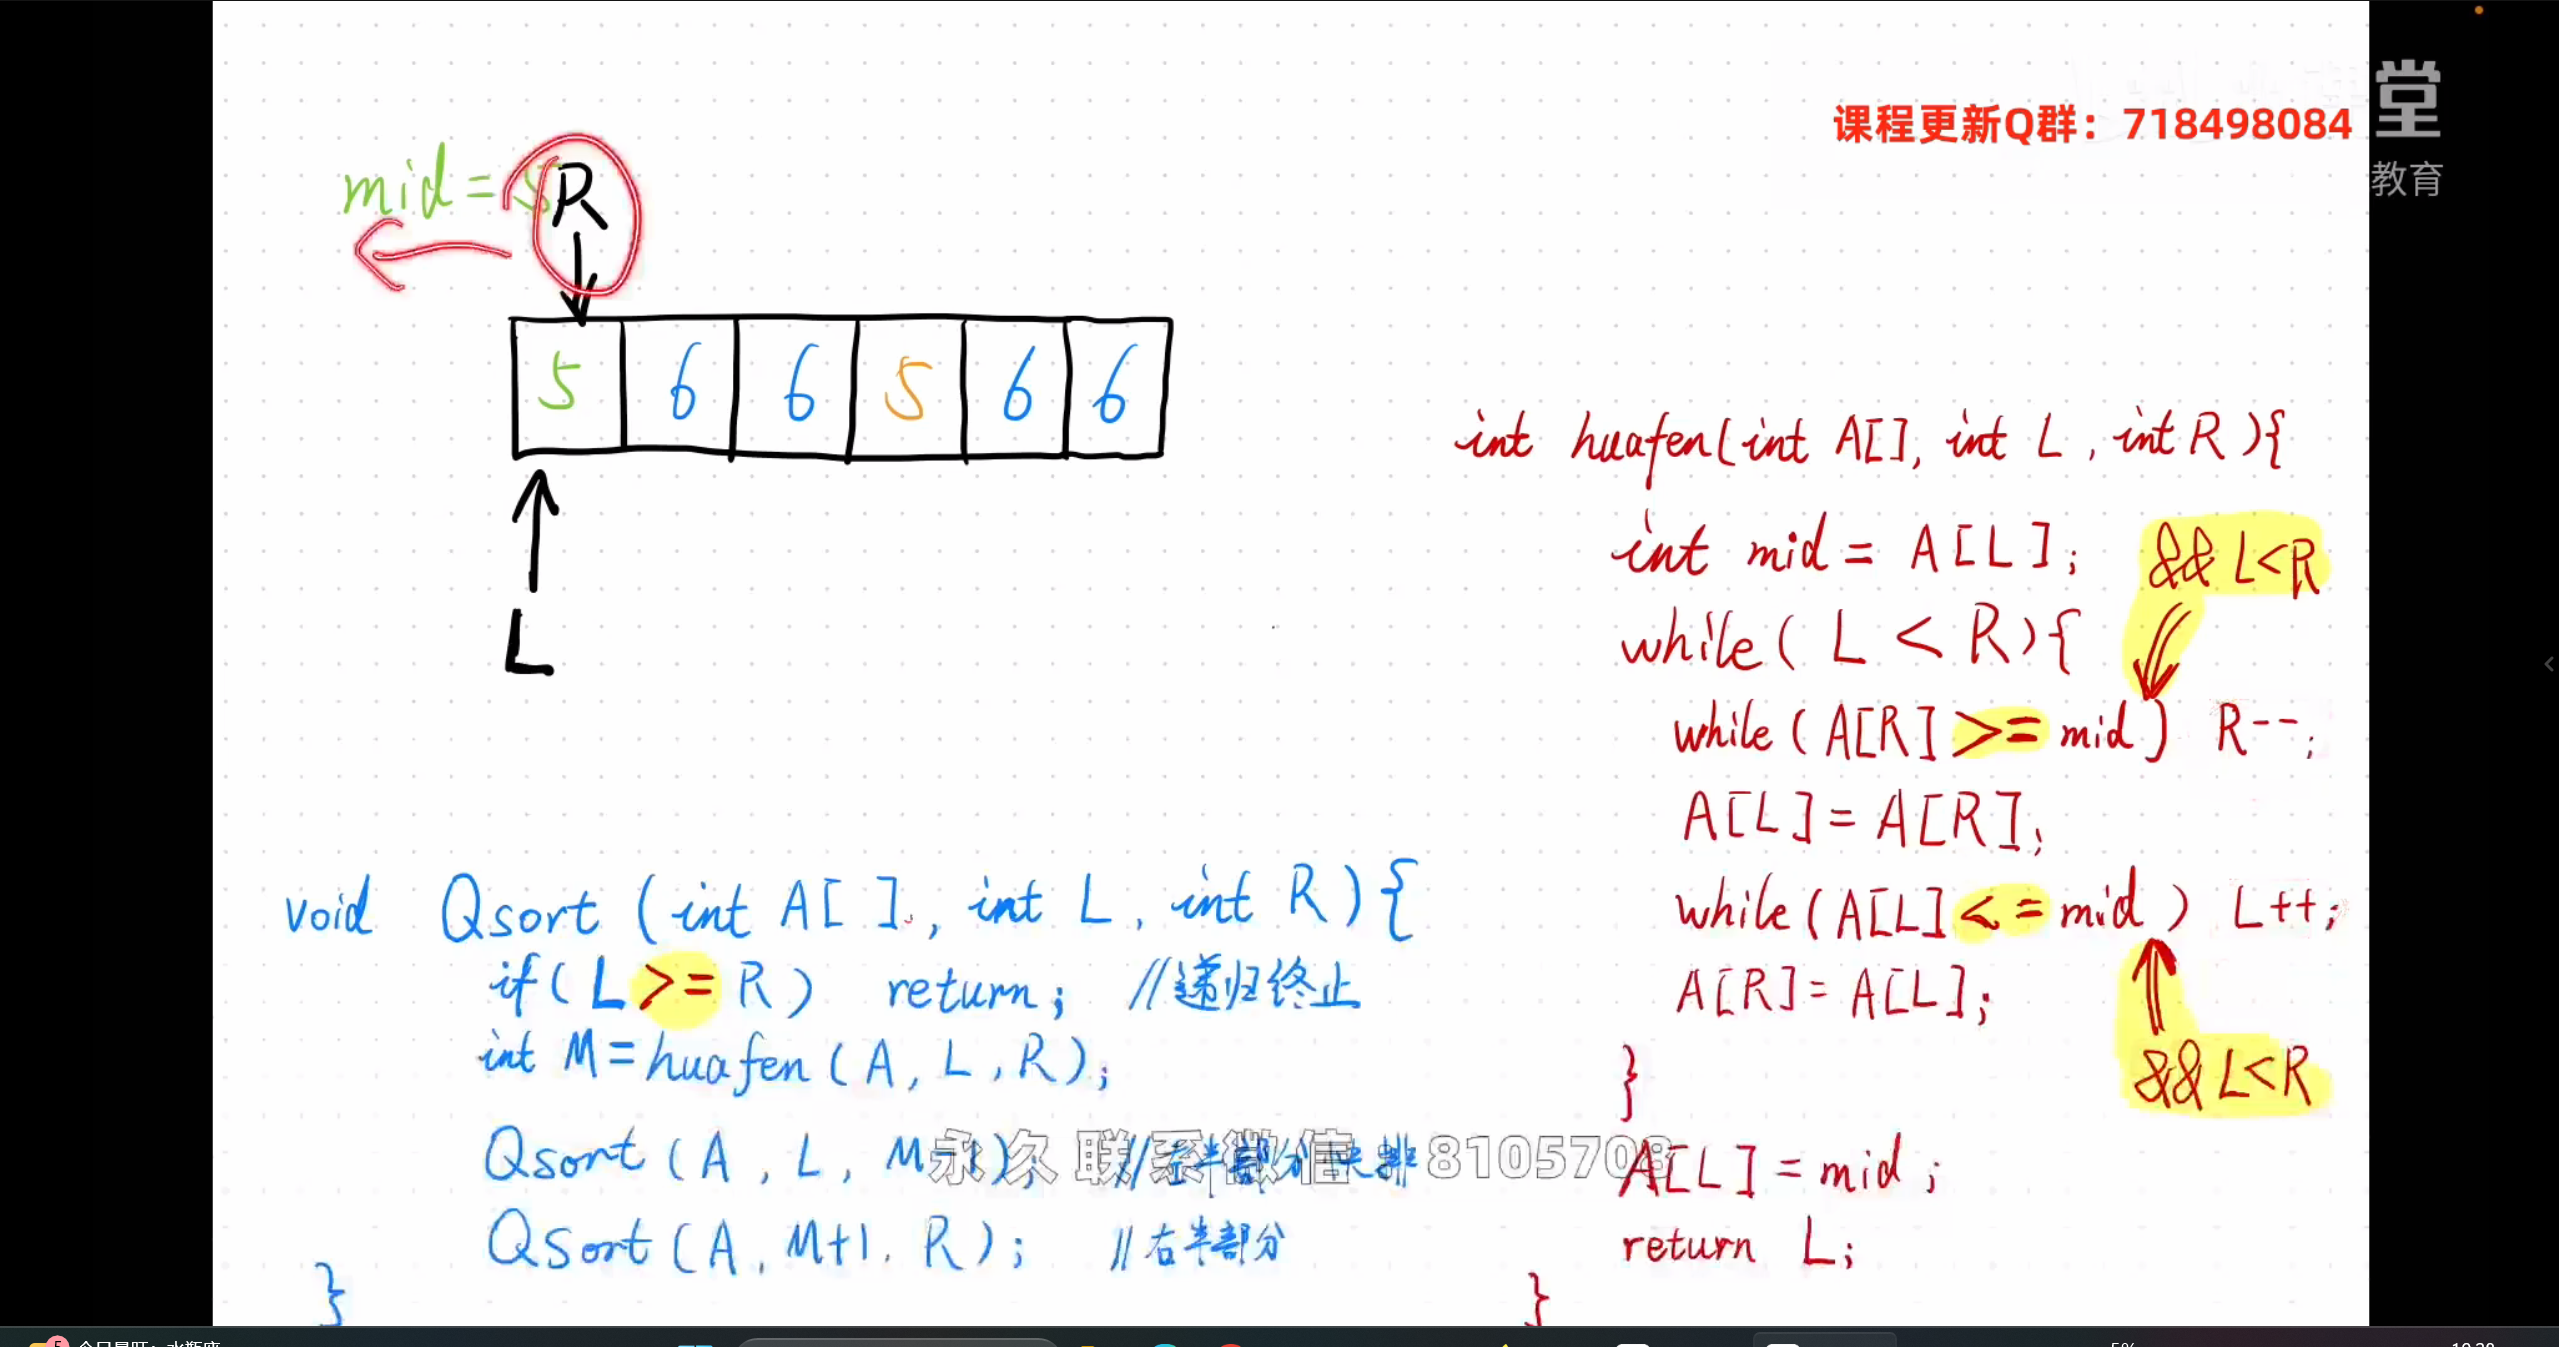 堂
课程更新Q群：718498084
教育
mid = 5
R
5 6 6 5 6 6
L
int huafen(int A[], int L, int R){
int mid = A[L];
&& L<R
while( L < R){
while(A[R] >= mid) R--;
A[L] = A[R];
while(A[L] <= mid) L++;
A[R] = A[L];
&& L<R
}
A[L] = mid;
return L;
}
void Qsort (int A[ ], int L, int R){
if( L >= R) return; //递归终止
int M = huafen(A, L, R);
Qsort(A, L, M-1); //左半部分快排
Qsort(A, M+1, R); //右半部分
}
永久联系微信 8105708
5